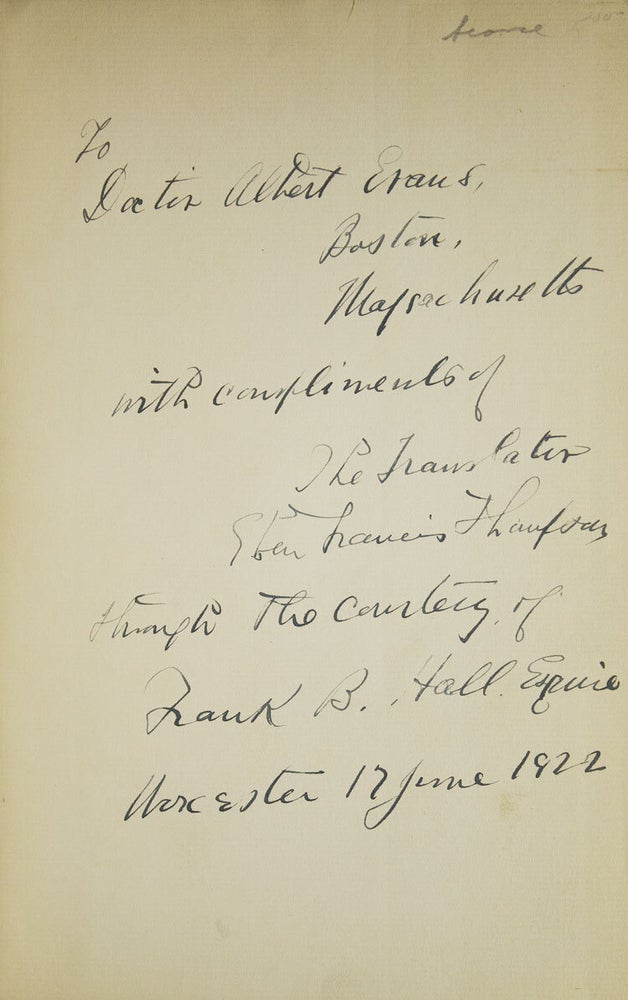 To
Doctor Albert Evans,
Boston,
Massachusetts
with compliments of
The Translator
Eben Francis Thompson
through the courtesy of
Frank B. Hall Esquire
Worcester 17 June 1922